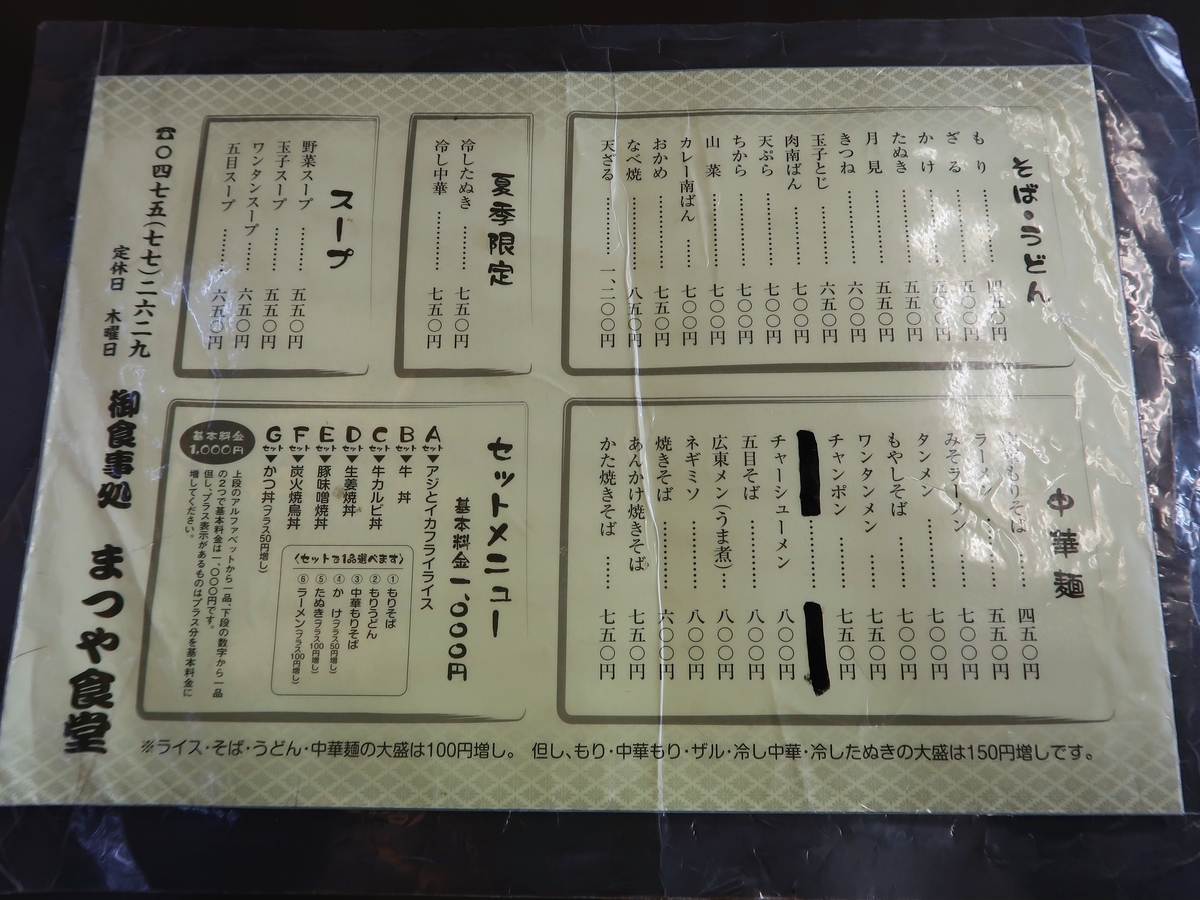 そば・うどん
もり…………四五〇円
ざる…………
かけ…………
たぬき…………五五〇円
月見…………五五〇円
きつね…………六〇〇円
玉子とじ…………六五〇円
肉南ばん…………七〇〇円
天ぷら…………七〇〇円
ちから…………七〇〇円
山菜…………七〇〇円
カレー南ばん……七〇〇円
おかめ…………七五〇円
なべ焼…………八五〇円
天ざる…………一、二〇〇円
夏季限定
冷したぬき…………七五〇円
冷し中華…………七五〇円
スープ
野菜スープ……五五〇円
玉子スープ……五五〇円
ワンタンスープ……六五〇円
五目スープ……六五〇円
☎〇四七五(七七)二六二九
定休日 木曜日
中華麺
中華もりそば……四五〇円
ラーメン…………五五〇円
みそラーメン……七〇〇円
タンメン…………七〇〇円
もやしそば…………七〇〇円
ワンタンメン……七五〇円
チャンポン…………七五〇円
チャーシューメン……八〇〇円
五目そば…………八〇〇円
広東メン(うま煮)…八〇〇円
ネギミソ…………八〇〇円
焼きそば…………六〇〇円
あんかけ焼きそば……七五〇円
かた焼きそば……七五〇円
セットメニュー
基本料金一、〇〇〇円
Aセット▼アジとイカフライライス
Bセット▼牛丼
Cセット▼牛カルビ丼
Dセット▼生姜焼丼
Eセット▼豚味噌焼丼
Fセット▼炭火焼鳥丼
Gセット▼かつ丼(プラス50円増し)
〈セットで1品選べます〉
①もりそば
②もりうどん
③中華もりそば
④かけ(プラス50円増し)
⑤たぬき(プラス100円増し)
⑥ラーメン(プラス100円増し)
基本料金
1,000円
上段のアルファベットから一品、下段の数字から一品
の2つで基本料金は一、〇〇〇円です。
但し、プラス表示があるものはプラス分を基本料金に
増してください。
御食事処 まつや食堂
※ライス・そば・うどん・中華麺の大盛は100円増し。 但し、もり・中華もり・ザル・冷し中華・冷したぬきの大盛は150円増しです。